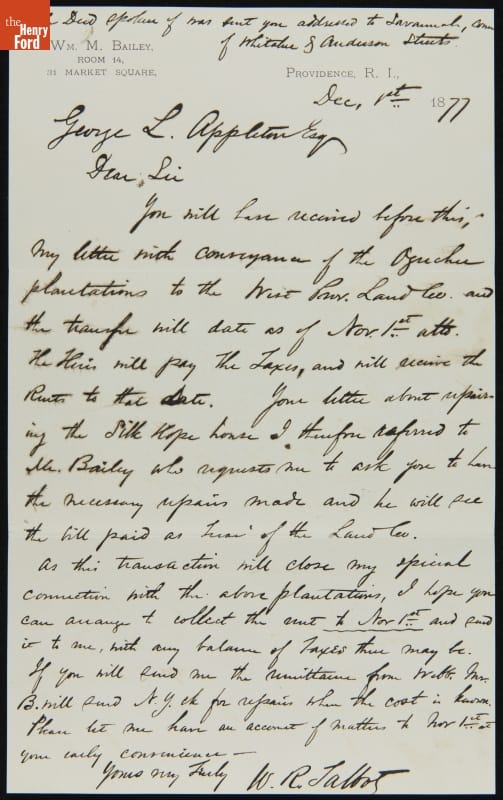 the
Henry
Ford
Deed spoken of was sent you addressed to Savannah, corner
of Whitaker & Anderson Streets.
WM. M. BAILEY,
ROOM 14,
31 MARKET SQUARE,
PROVIDENCE, R. I.,
Dec, 1st 1877
George L. Appleton Esq
Dear Sir
You will have received before this,
my letter with conveyance of the Ogechee
plantations to the West Prov. Land Co. and
the transfer will date as of Nov. 1st
the Heirs will pay the Taxes, and will receive the
Rents to that date. Your letter about repair-
ing the Silk Hope house I therefore referred to
Mr. Bailey who requests me to ask you to have
the necessary repairs made and he will see
the bill paid as Treas' of the Land Co.
As this transaction will close my special
connection with the above plantations, I hope you
can arrange to collect the rent to Nov 1st and send
it to me, with any balance of Taxes there may be.
If you will send me the remittance from Webb. Mr.
B. will send N. Y. ck for repairs when the cost is known.
Please let me have an account of matters to Nov 1st at
your early convenience —
Yours very truly W. R. Talbot